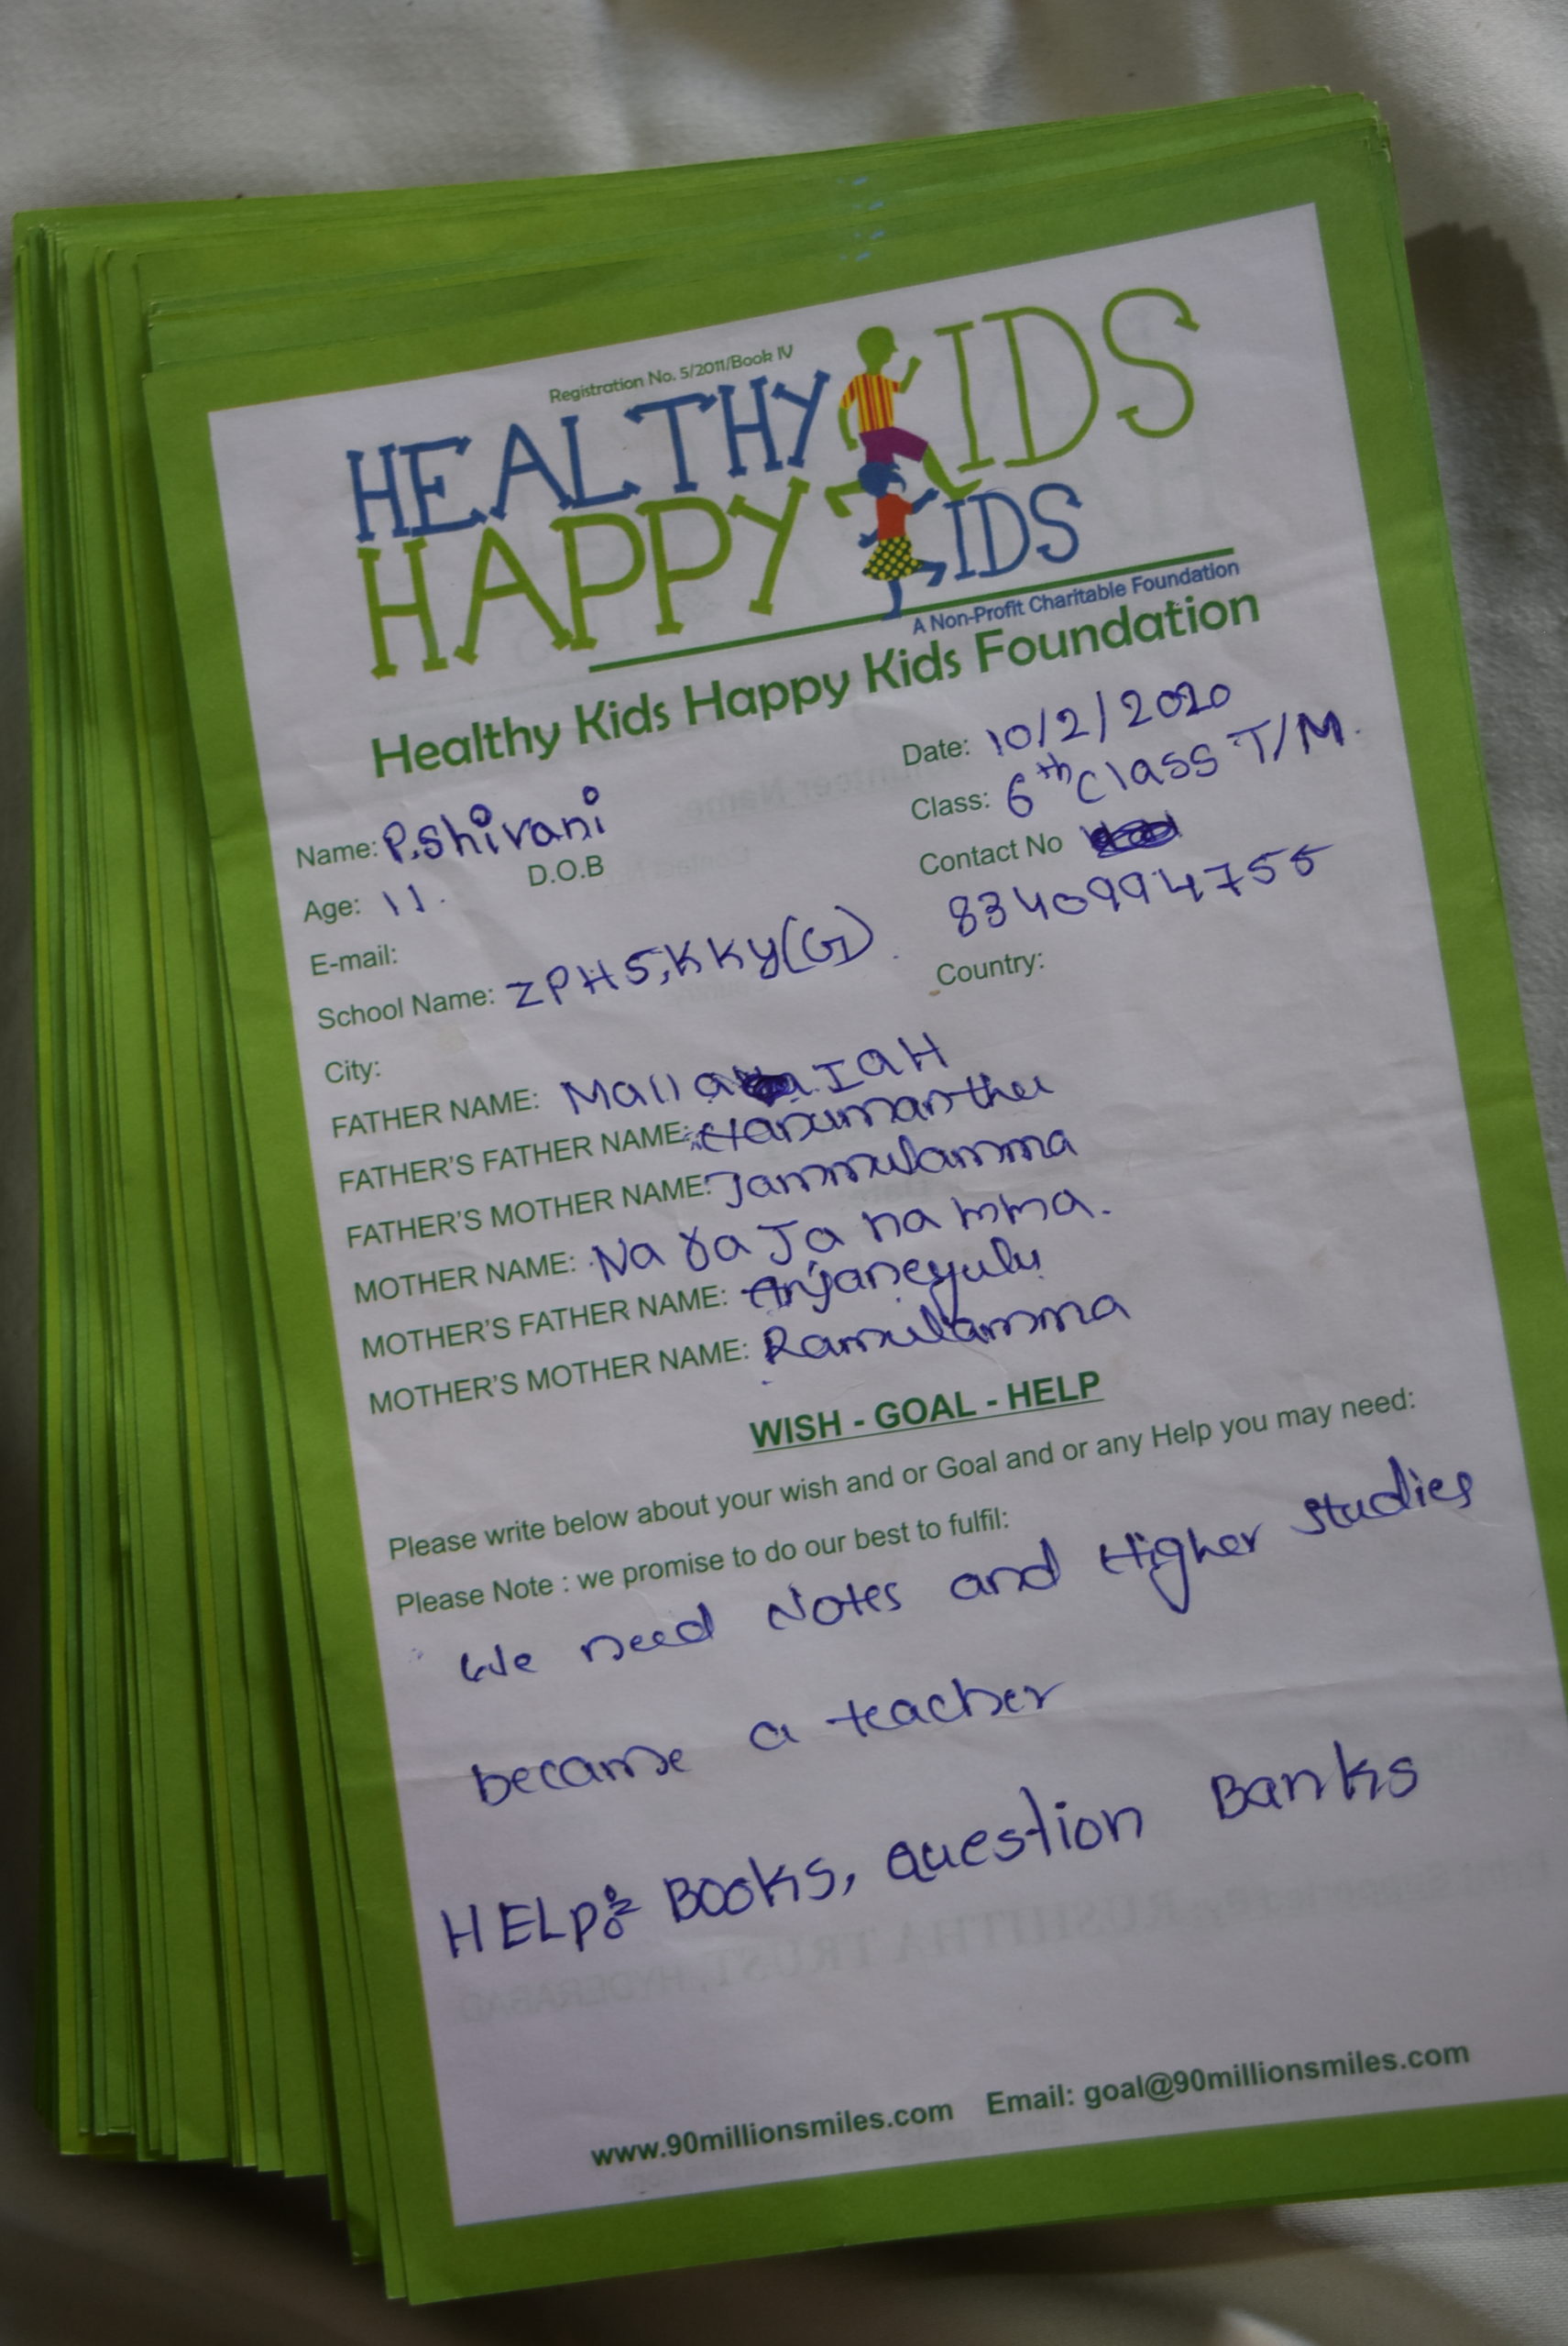 Registration No. 5/2011/Book IV
HEALTHY KIDS
HAPPY KIDS
A Non-Profit Charitable Foundation
Healthy Kids Happy Kids Foundation
Date: 10/2/2020
Name: P.Shivani
Class: 6th Class T/M.
Age: 11. D.O.B
Contact No
8340994755
E-mail:
School Name: ZPHS, KKY(G)
Country:
City:
FATHER NAME: Mallaiah
FATHER'S FATHER NAME: Hanumanthu
FATHER'S MOTHER NAME: Jammulamma
MOTHER NAME:
MOTHER'S FATHER NAME: Anjaneyulu
MOTHER'S MOTHER NAME: Ramulamma
WISH - GOAL - HELP
Please write below about your wish and or Goal and or any Help you may need:
Please Note : we promise to do our best to fulfil:
We need Notes and Higher studies
became a teacher
HELP: BOOKS, question Banks
www.90millionsmiles.com Email: goal@90millionsmiles.com